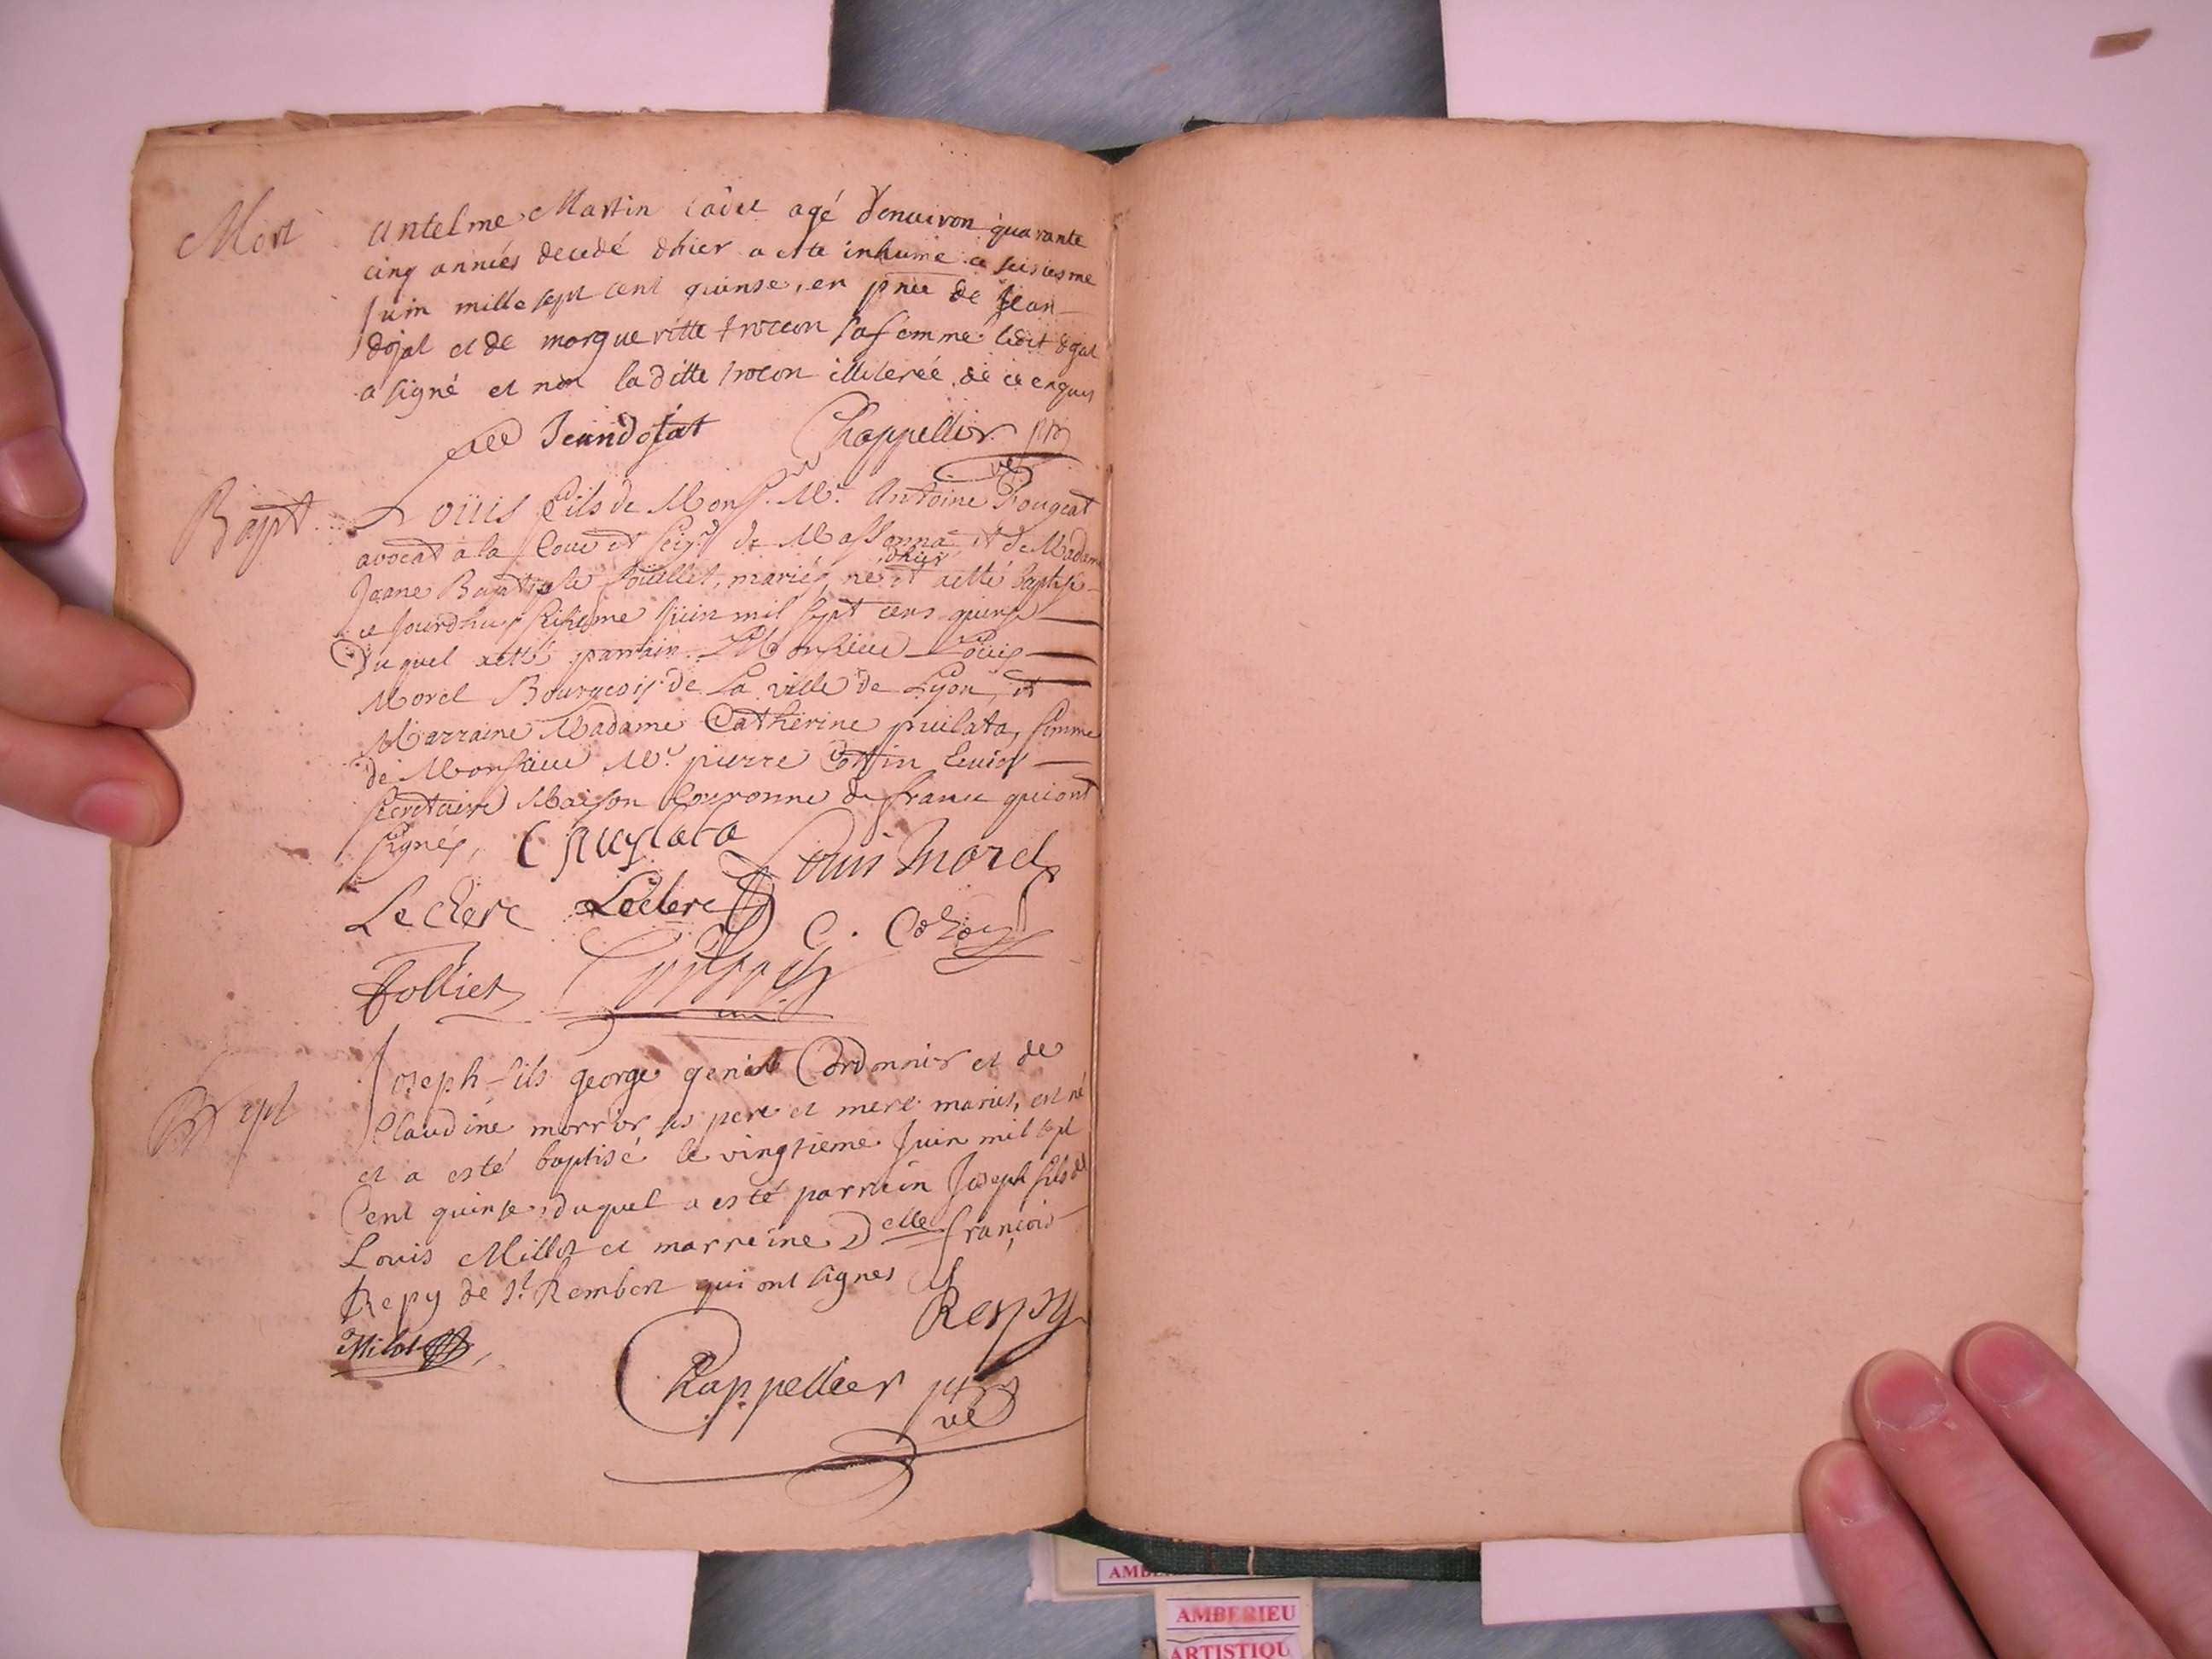 Mort
Antelme Martin cadet agé d'enuiron quarante
cinq années decedé d'hier a esté inhumé ce seisiesme
Juin mille sept cent quinse, en pnce de Jean
dojat et de margueritte trocon sa femme ledit dojat
a signé et non laditte trocon illiterée de ce enquis
Jean dojat Chappellier ptre
ve
Bapt.
Loüis fils de Monsr. Mr. Antoine Fougeat
avocat a la Cour et seigr de Massonna et de Madame
dhier
Jeane Baptiste mariés, né et aetté baptisé
ce jourdhuy seisieme juin mil sept cens quinse
Duquel aetté parrain Monsieur Loüis
Morel Bourgeois de La ville de Lyon, et
Marraine Madame Catherine puilata, femme
de Monsieur Mr. pierre Cottin
secretaire Maison Couronne de france qui ont
signés, C puylata
Louis Morel
Leclerc Leclerc
C.
follier
Bapt
Joseph fils george genin Cordonnier et de
Claudine morrier ses pere et mere mariés, est né
et a esté baptisé le vingtieme Juin mil sept
Cent quinse, duquel a esté parrein Joseph fils de
Louis Millot et marreine Delle françoise
Repy de St. Rembert qui ont signés
f Respy
Milot
Chappellier ptre
ve
AMBERIEU
ARTISTIQU